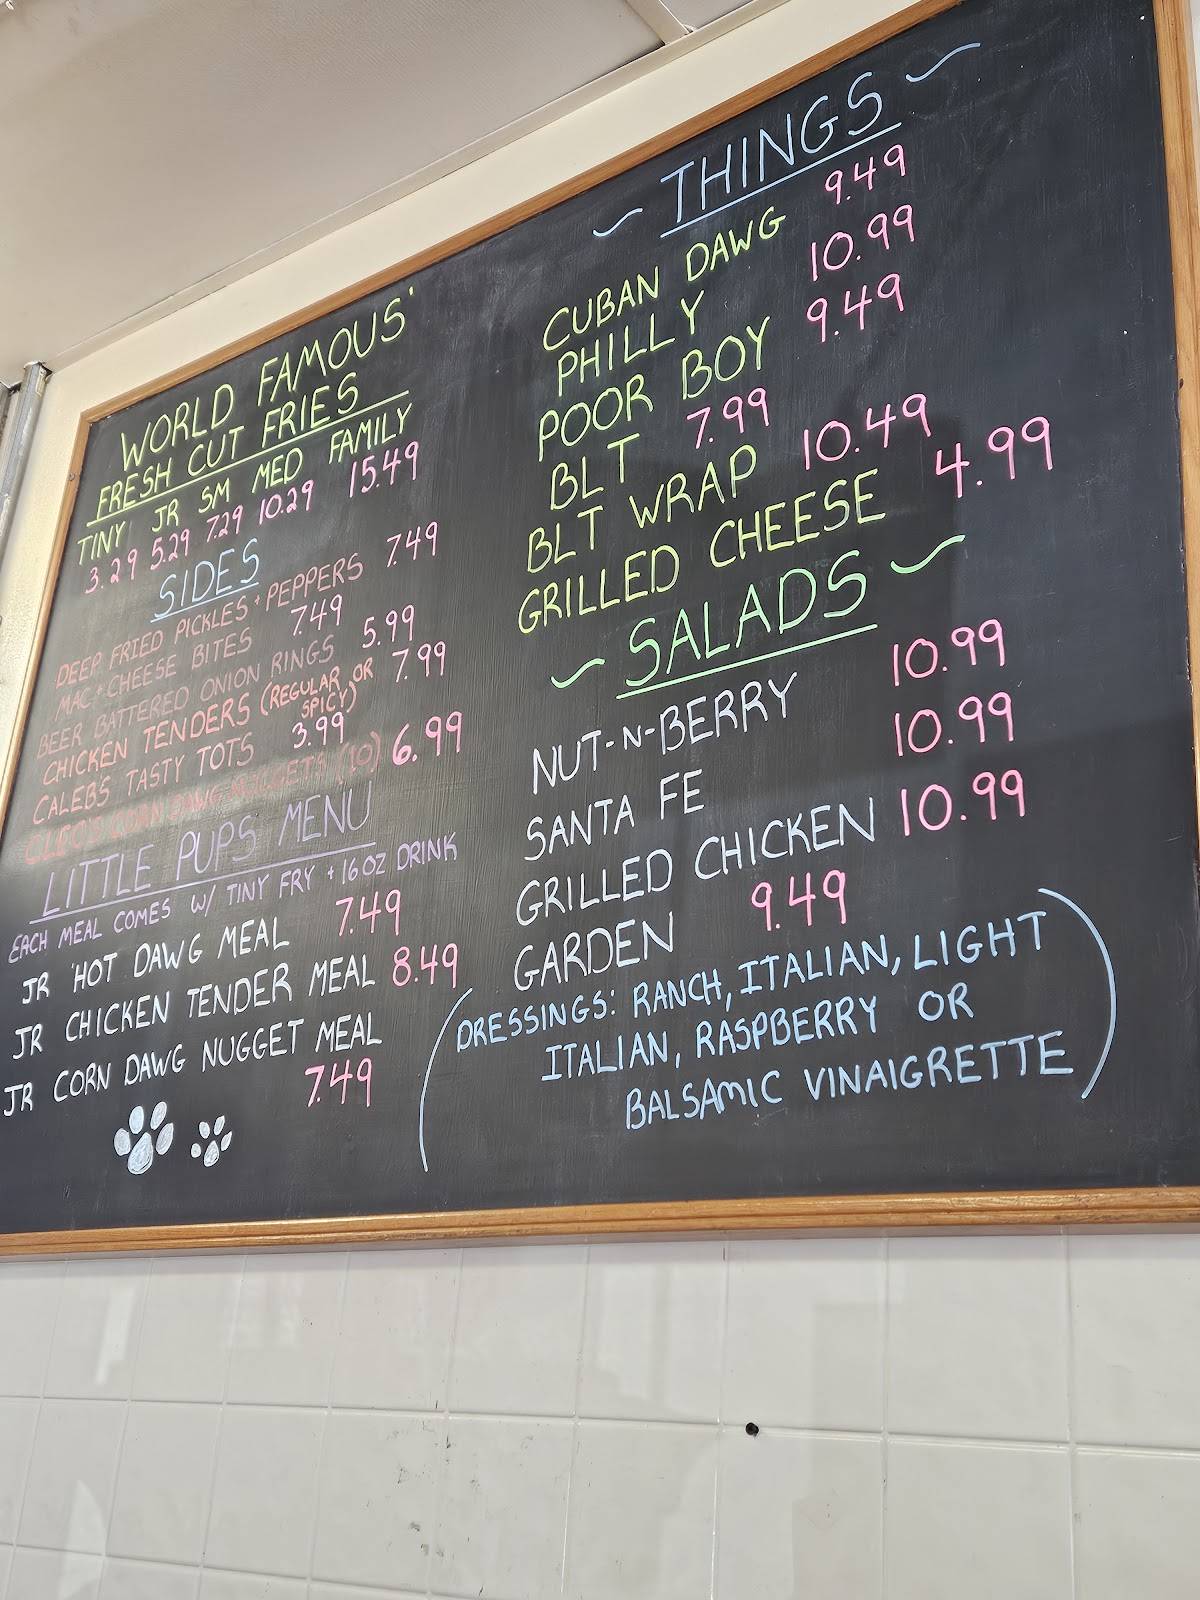 WORLD FAMOUS'
FRESH CUT FRIES
TINY JR SM MED FAMILY
3.29 5.29 7.29 10.29 15.49
SIDES
DEEP FRIED PICKLES + PEPPERS 7.49
MAC + CHEESE BITES 7.49
BEER BATTERED ONION RINGS 5.99
CHICKEN TENDERS (REGULAR OR SPICY) 7.99
CALEB'S TASTY TOTS 3.99
CLEO'S CORN DAWG NUGGETS (10) 6.99
LITTLE PUPS MENU
EACH MEAL COMES W/ TINY FRY + 16 OZ DRINK
JR HOT DAWG MEAL 7.49
JR CHICKEN TENDER MEAL 8.49
JR CORN DAWG NUGGET MEAL
7.49
~ THINGS ~
CUBAN DAWG 9.49
PHILLY 10.99
POOR BOY 9.49
BLT 7.99
BLT WRAP 10.49
GRILLED CHEESE 4.99
~ SALADS ~
NUT-N-BERRY 10.99
SANTA FE 10.99
GRILLED CHICKEN 10.99
GARDEN 9.49
(DRESSINGS: RANCH, ITALIAN, LIGHT
ITALIAN, RASPBERRY OR
BALSAMIC VINAIGRETTE)